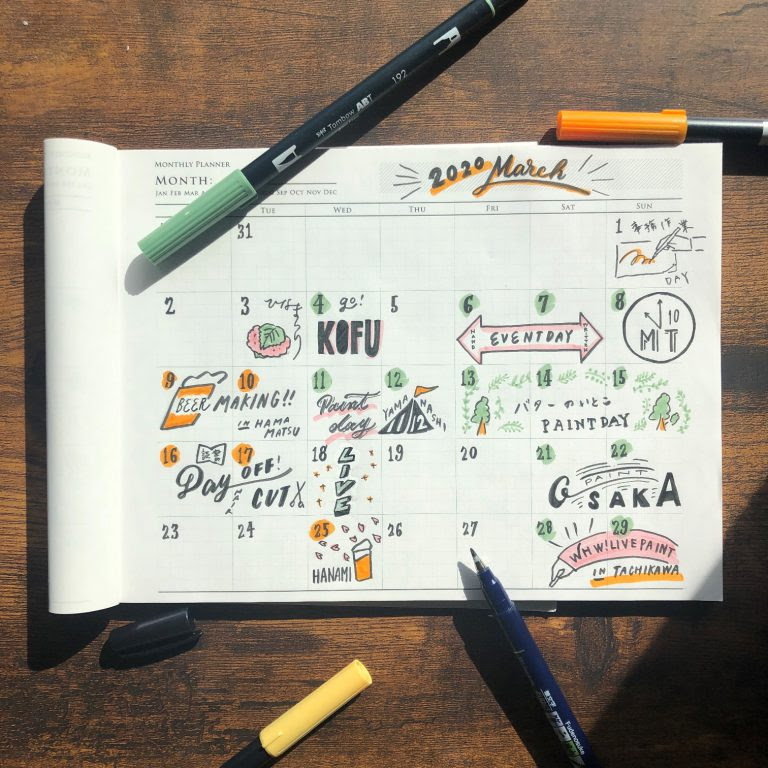 192
Tombow ABT
MONTHLY PLANNER
MONTH:
2020 March
JAN FEB MAR A
SEP OCT NOV DEC
TUE
WED
THU
FRI
SAT
SUN
31
1
事務作業
DAY
2
3 ひなまつり
4 go!
KOFU
5
6
7
HAND
EVENTDAY
8
10
MT
9
10
BEER MAKING!!
IN HAMA
MATSU
11
Paint
day
12
YAMANASHI
13
14
15
バターのいとこ
PAINTDAY
16
17
Day OFF!
CUT
18
LIVE
19
20
21
22
PAINT
OSAKA
23
24
25
HANAMI
26
27
28
29
WHW!LIVEPAINT
IN TACHIKAWA
Fudenosuke